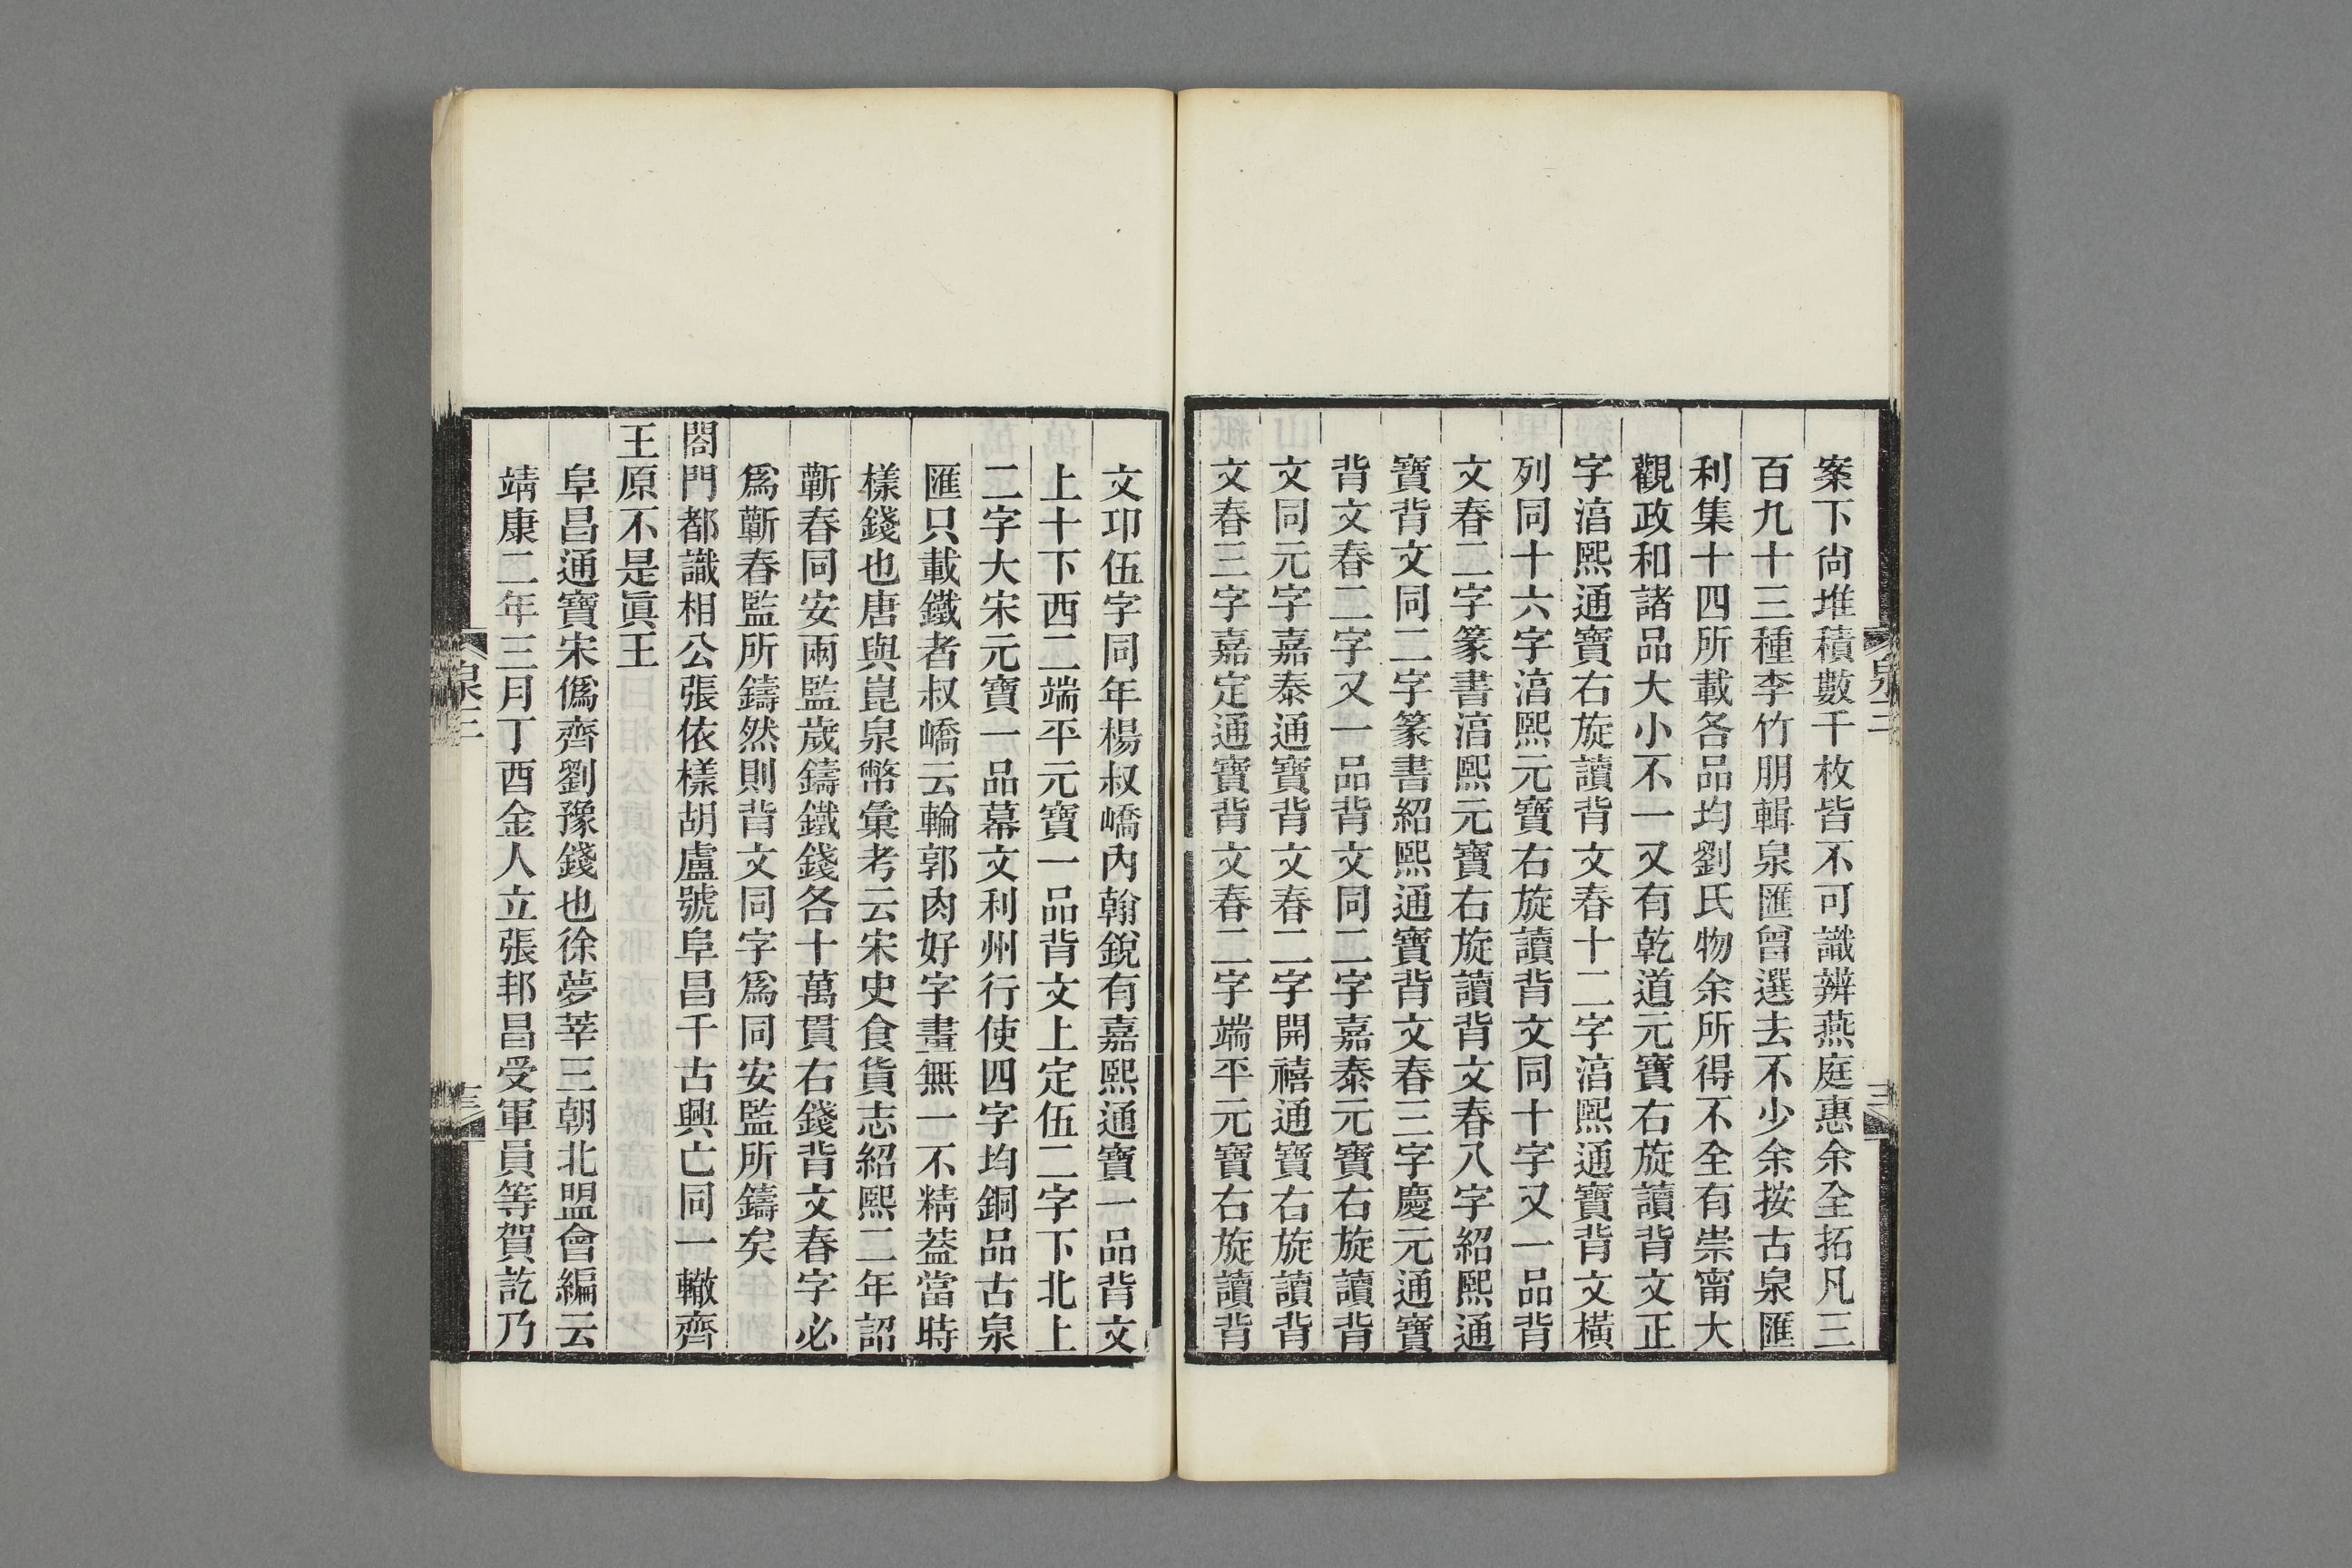 案下尙堆積數千枚皆不可識辨燕庭惠余全拓凡三
百九十三種李竹朋輯泉匯曾選去不少余按古泉匯
利集十四所載各品均劉氏物余所得不全有崇甯大
觀政和諸品大小不一又有乾道元寶右旋讀背文正
字湻熙通寶右旋讀背文春十二字湻熙通寶背文橫
列同十六字湻熙元寶右旋讀背文同十字又一品背
文春二字篆書湻熙元寶右旋讀背文春八字紹熙通
寶背文同二字篆書紹熙通寶背文春三字慶元通寶
背文春二字又一品背文同二字嘉泰元寶右旋讀背
文同元字嘉泰通寶背文春二字開禧通寶右旋讀背
文春三字嘉定通寶背文春二字端平元寶右旋讀背
泉三
三
文卭伍字同年楊叔嶠內翰銳有嘉熙通寶一品背文
上十下西二端平元寶一品背文上定伍二字下北上
二字大宋元寶一品幕文利州行使四字均銅品古泉
匯只載鐵者叔嶠云輪郭肉好字畫無一不精葢當時
樣錢也唐與崑泉幣彙考云宋史食貨志紹熙二年詔
蘄春同安兩監歲鑄鐵錢各十萬貫右錢背文春字必
爲蘄春監所鑄然則背文同字爲同安監所鑄矣
閤門都識相公張依樣胡盧號阜昌千古興亡同一轍齊
王原不是眞王
阜昌通寶宋僞齊劉豫錢也徐夢莘三朝北盟會編云
靖康二年三月丁酉金人立張邦昌受軍員等賀訖乃
泉三
三